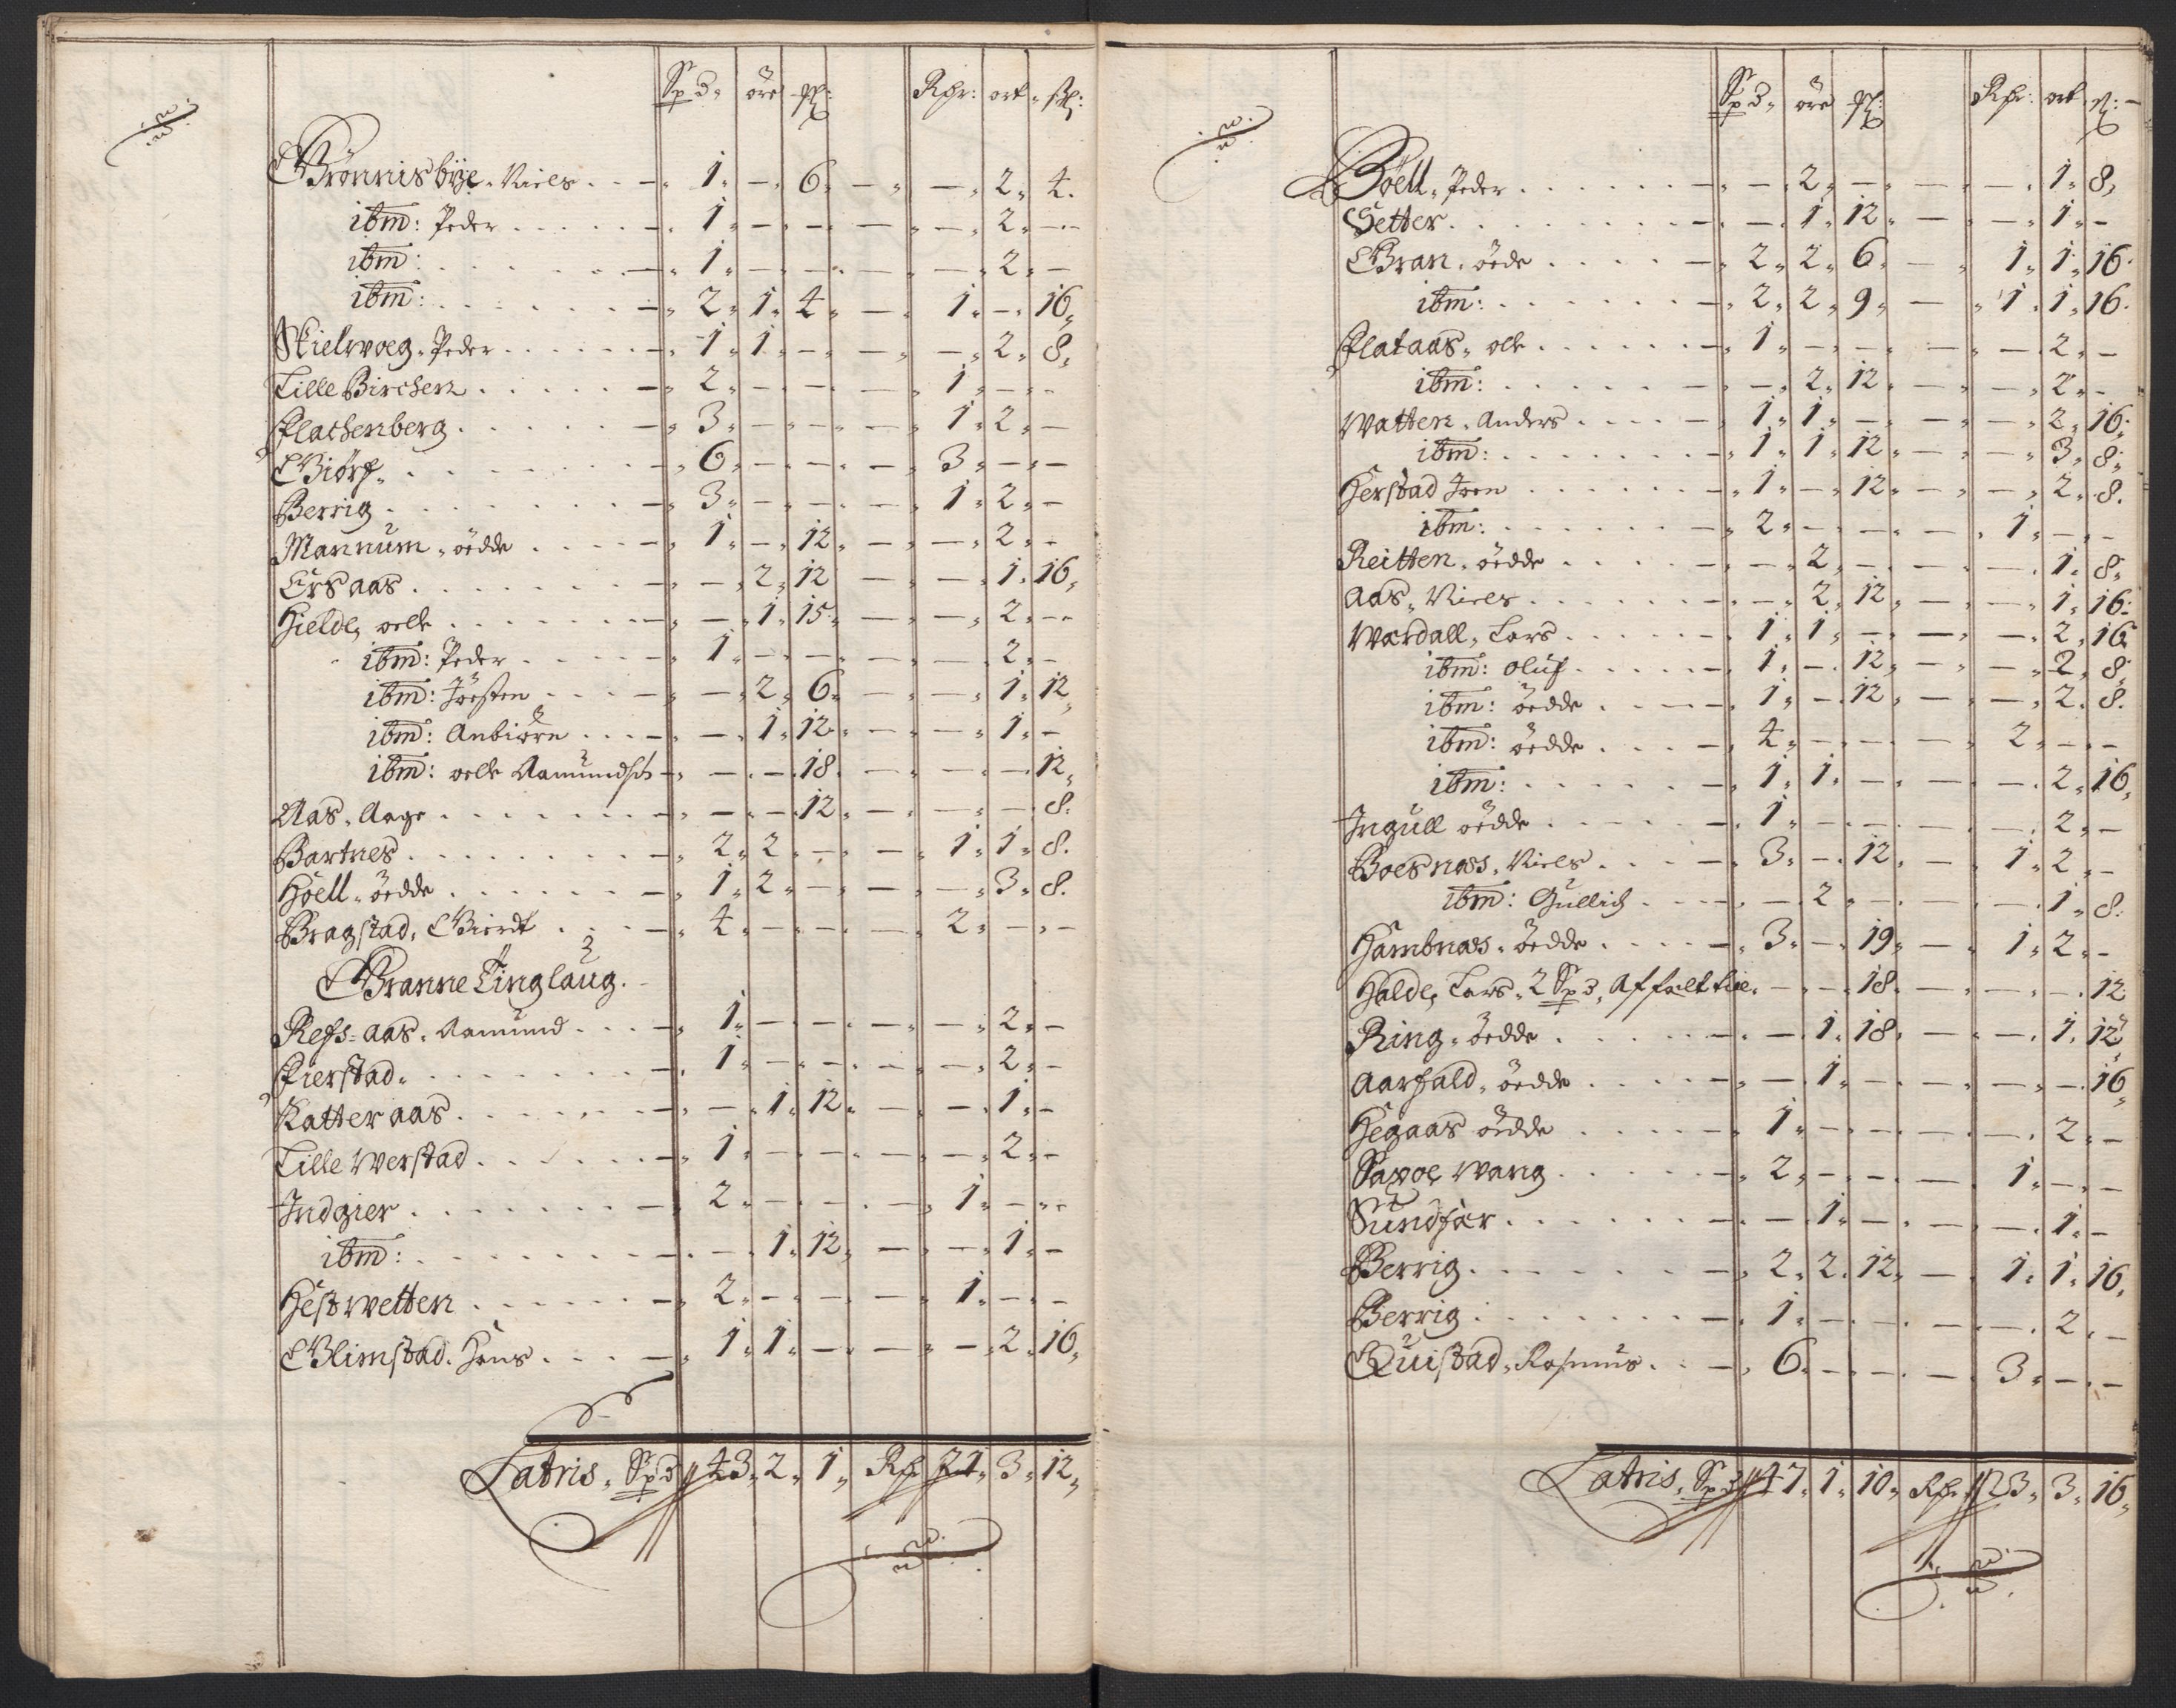 Sp 3, öre ß: Rhr: ort, ßl:
Grönnisbÿe, Niels . . - 1, - 6, - - 2, 4.
ibm: Peder . . . . . 1, - - - - 2, -
ibm: . . . . . . 1, - - - - 2, -
ibm: . . . . . . 2, 1, 4, - 1, - 16,
Skielwoeg, Peder . . . . . 1, 1, - - - 2, 8,
Lille Birchen . . . . . 2, - - - 1, - -
Flathenberg . . . . . 3, - - - 1, 2, -
Giörf, . . . . . . 6, - - - 3, - -
Berrig . . . . . . 3, - - - 1, 2, -
Mannum, öedde . . . . 1, - 12, - - 2, -
Ersaas . . . . . . - 2, 12 - - 1, 16,
Hielde, oelle . . . . . - 1, 15, - - 2, -
ibm: Peder . . . . 1, - - - - 2, -
ibm: Törsten . . . - 2, 6, - - 1, 12,
ibm: Anbiörn . . . - 1, 12, - - 1, -
ibm: oelle Aamundsen - - - 18, - - - 12,
Aas, Aage . . . . . . - - 12, - - - 8.
Bartnes . . . . . . 2, 2, - - 1, 1, 8.
Höell, öedde . . . . . 1, 2, - - - 3, 8.
Bragstad, Gierdt . . . 4, - - - 2, - -
Granne Tinglaug.
Refs-aas, Aamund . . . 1, - - - - 2, -
Fierstad, . . . . . . 1, - - - - 2, -
Katteraas . . . . . . - 1, 12, - - 1, -
Lille Werstad . . . . . 1, - - - - 2, -
Indgier . . . . . . 2, - - - 1, - -
ibm: . . . . . . - 1, 12, - - 1, -
Hestwetten . . . . . 2, - - - 1, - -
Glimstad, Hans . . . . 1, 1, - - - 2, 16,
Latris, Sp 3 43, 2, 1, Rh 21, 3, 12,
Sp 3, öre ß: Rhr: ort ß: -
Böell, Peder . . . . . - 2, - - - 1, 8,
Setter . . . . . . - 1, 12, - - 1, -
Gran, öede . . . . 2, 2, 6, - 1, 1, 16.
ibm: . . . . . . 2, 2, 9, - 1, 1, 16.
Flataas, olle . . . . . 1, - - - - 2, -
ibm: . . . . . - 2, 12, - - 2, -
Watten, Anders . . . . 1, 1, - - - 2, 16.
ibm: . . . . . . 1, 1, 12, - - 3, 8.
Herstad Joen . . . . . 1, - 12, - - 2, 8.
ibm: . . . . . . 2, - - - 1, - -
Reitten, öedde . . . . - 2, - - - 1, 8,
Aas, Niels . . . . . - 2, 12, - - 1, 16.
Wærdall, Lars . . . . . 1, 1, - - - 2, 16
ibm: Oluf . . . . . 1, - 12, - - 2, 8,
ibm: öedde . . . . 1, - 12, - - 2, 8.
ibm: öedde . . . 4, - - - 2, - -
ibm: . . . . . . 1, 1, - - - 2, 16,
Ingull öedde . . . . . 1, - - - - 2, -
Boesnæs, Niels . . . 3, - 12, - 1, 2, -
ibm: Gullich . . . - 2, - - - 1, 8.
Hambnæs, öedde . . . . 3, - 19, - 1, 2, -
Halde, Lars, 2 Sp 3, Affælttie, - - 18, - - - 12
Ring, öedde . . . . . - 1, 18, - - 1, 12,
Aarfald, öedde . . . . - 1, - - - - 16,
Hegaas öedde . . . . 1, - - - - 2, -
Saxoe Wang . . . . . 2, - - - 1, - -
Sundfær . . . . . . - 1, - - - 1, -
Berrig . . . . . . 2, 2, 12, - 1, 1, 16,
Berrig . . . . . . 1, - - - - 2, -
Quistad, Rasmus . . . 6, - - - 3, - -
Latris, Sp 3 47, 1, 10, Rh 23, 3, 16,